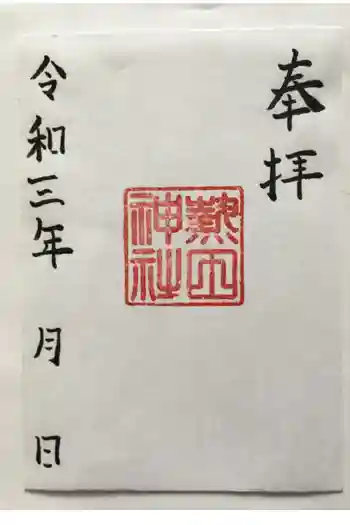 奉拝
熱田
神社
令和三年 月 日